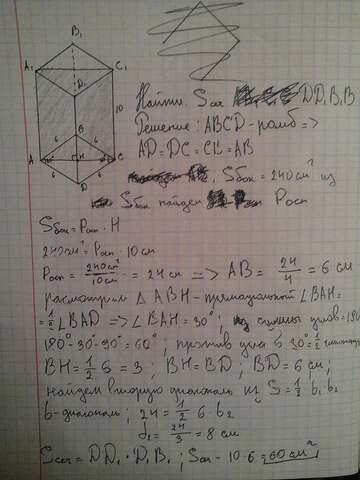 B₁
A₁
C₁
D₁
10
6
6
B
A
H
C
D
Найти: Sсеч DD₁B₁B
Решение: ABCD - ромб =>
AD = DC = CB = AB
Sбок = 240 см² из
Sбок найдем Pосн
Sбок = Pосн · H
240 см² = Pосн · 10 см
Pосн = 240 см² / 10 см = 24 см => AB = 24/4 = 6 см
рассмотрим △ ABH - прямоугольный ∠BAH =
= 1/2 ∠BAD => ∠BAH = 30°, из суммы углов = 180
180° - 30 - 90 = 60°, против угла в 30 = 1/2 гипотенузы
BH = 1/2 6 = 3; BH = BD; BD = 6 см;
найдем вторую диагональ из S = 1/2 b₁ · b₂
b - диагональ; 24 = 1/2 6 · b₂
d₂ = 24/3 = 8 см
Sсеч = DD₁ · D₁B₁; Sсеч - 10 · 6 = 60 см²